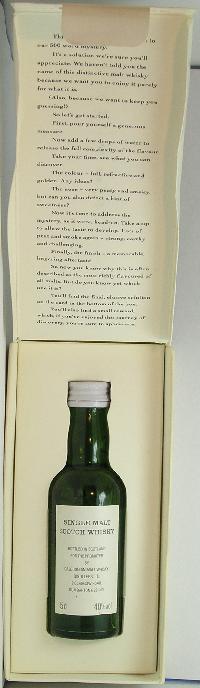 our 500 word mystery.
It's a solution we're sure you'll
appreciate. We haven't told you the
name of this distinctive malt whisky
because we want you to enjoy it purely
for what it is.
(Also, because we want to keep you
guessing!)
So let's get started.
First, pour yourself a generous
measure.
Now add a few drops of water to
release the full complexity of the flavour
Take your time, see what you can
discover.
The colour – full,
golden. Any ideas?
The nose – very peaty and smoky,
but can you also detect a hint of
sweetness?
Now it's time to address the
mystery, as it were, head-on. Take a sip
to allow the taste to develop. Lots of
peat and smoke again – strong, earthy
and challenging.
Finally, the finish – a memorable,
lingering after taste.
So now you know why this is often
described as the most richly flavoured of
all malts. But do you know yet which
one it is?
You'll find the final, elusive solution
on the card in the bottom of the box.
You'll also find a small reward
which, if you've enjoyed this journey of
discovery, you're sure to appreciate.
SINGLE MALT
SCOTCH WHISKY
BOTTLED IN SCOTLAND
FOR THE PROMOTER
BY
5cl 40%vol